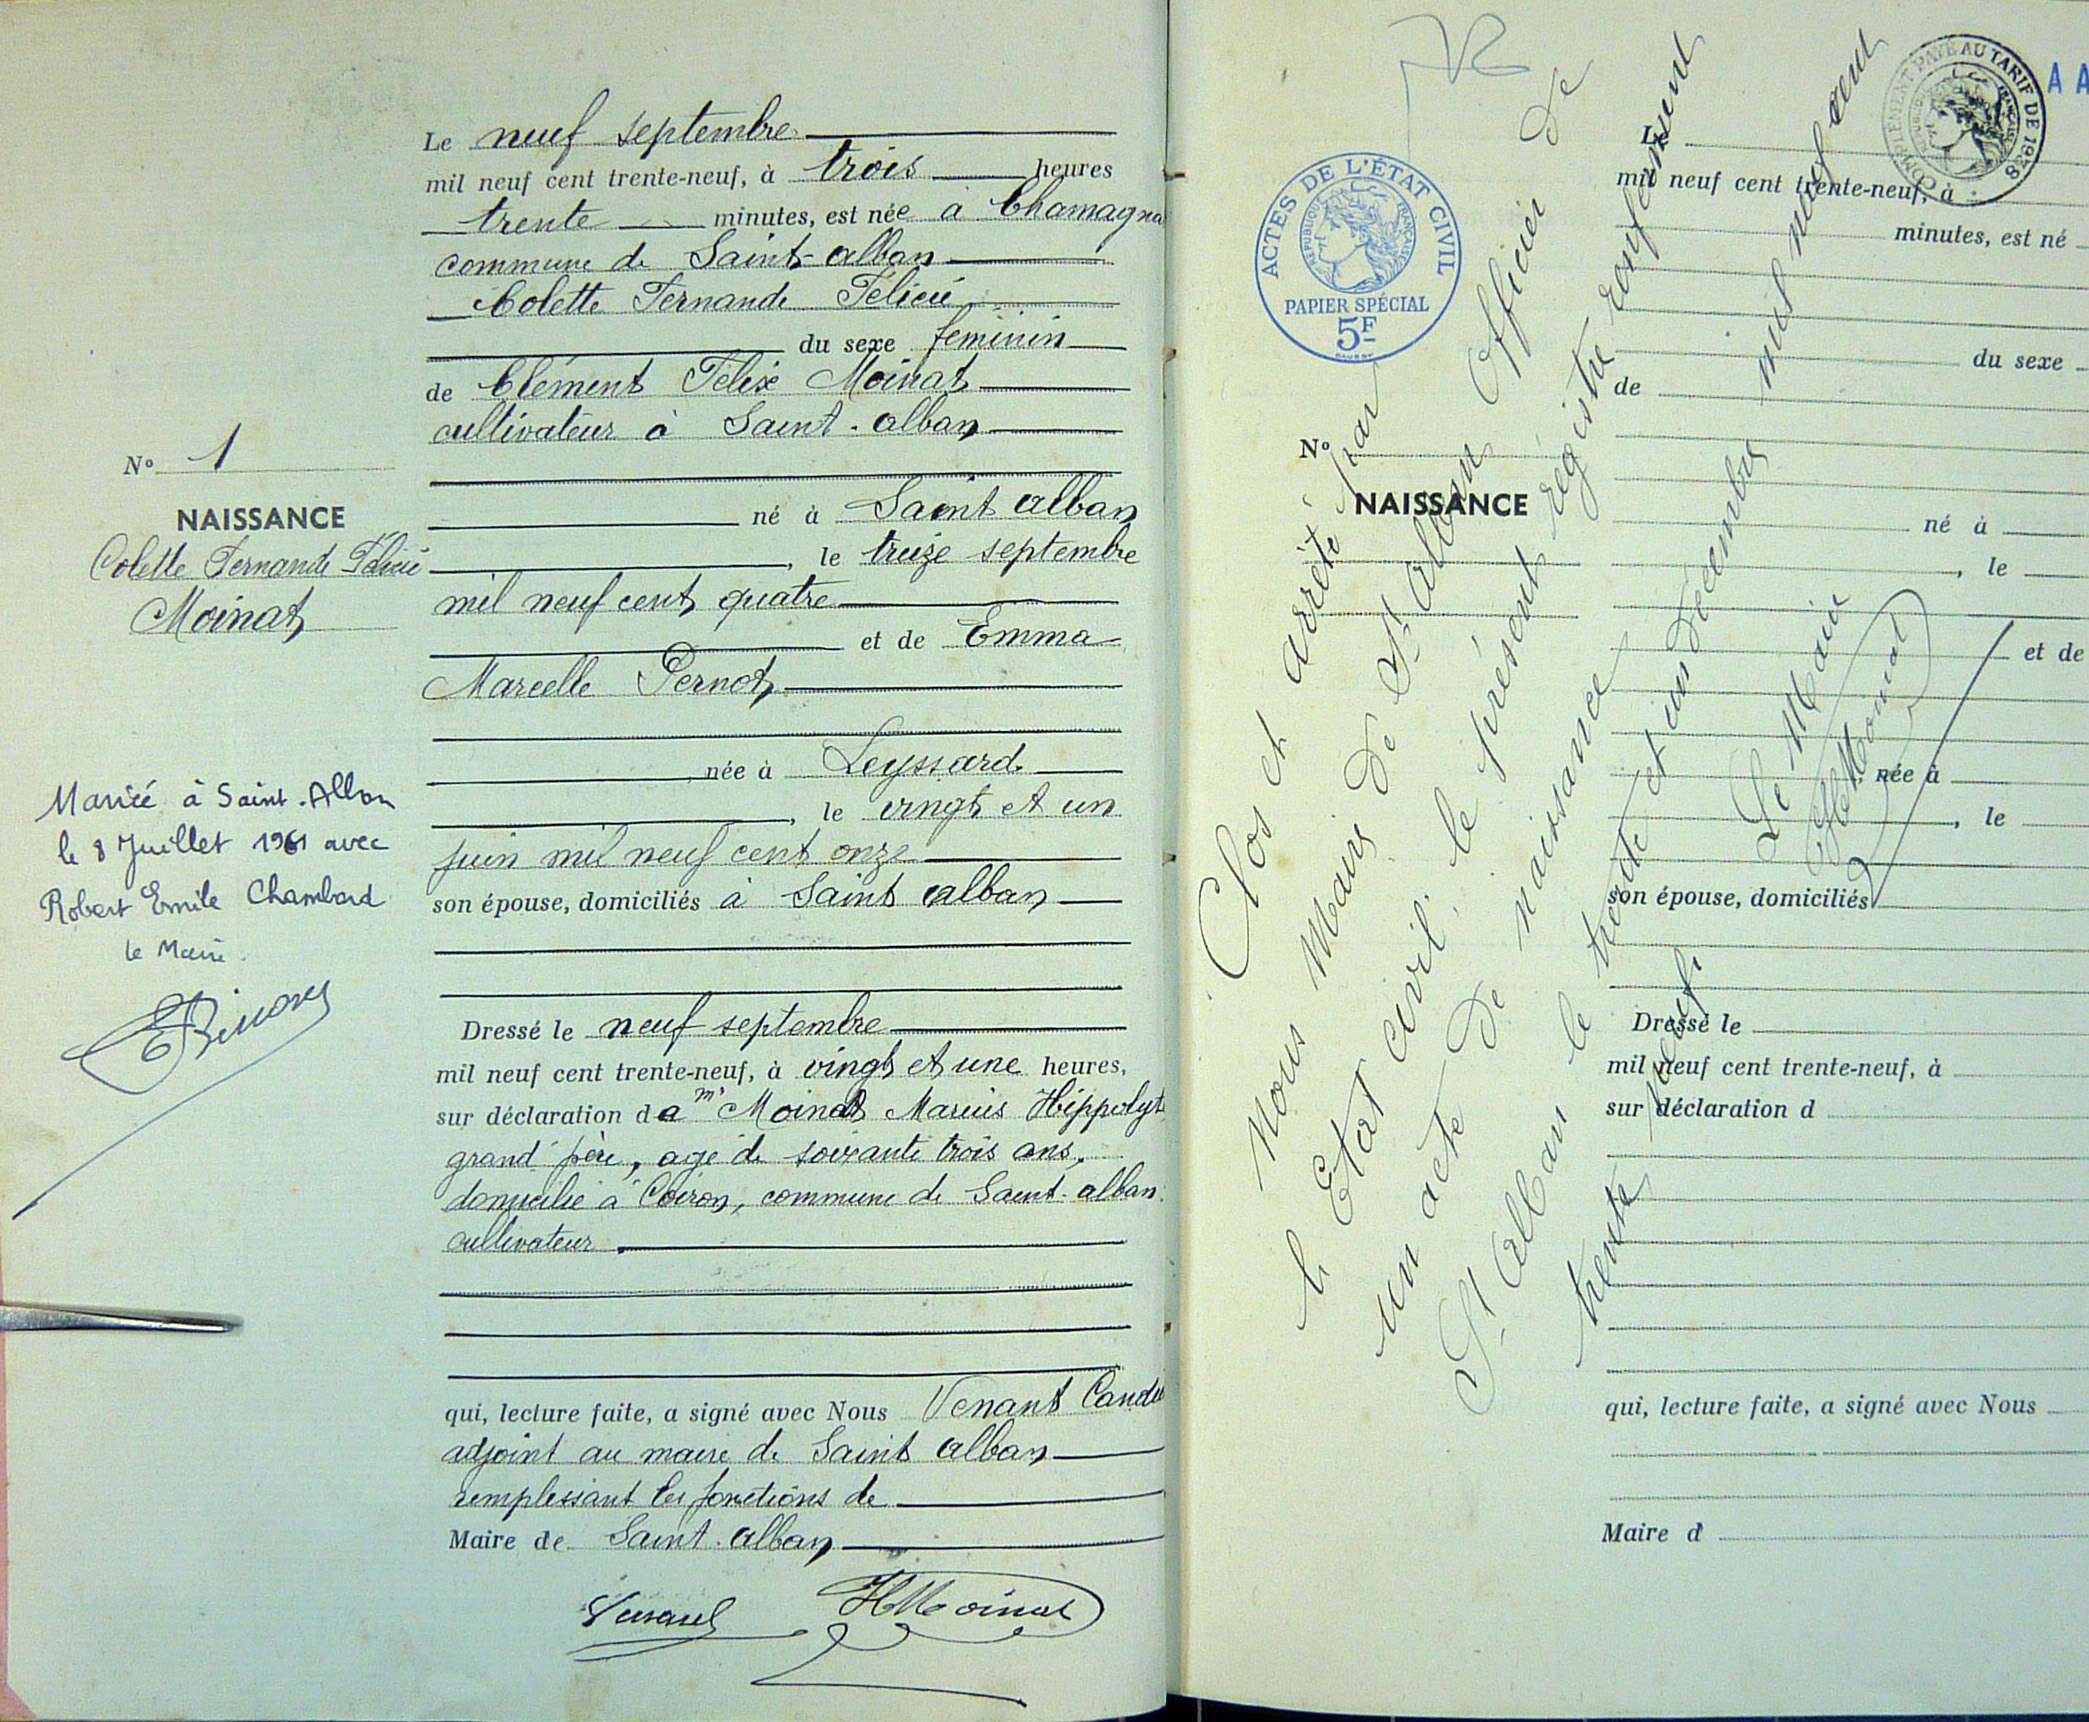 N° 1
NAISSANCE
Colette Fernande Félicie
Moinat
Mariée à Saint-Alban
le 8 Juillet 1961 avec
Robert Emile Chambard
le Maire
Le neuf septembre
mil neuf cent trente-neuf, à trois heures
trente minutes, est née à Chamagna
commune de Saint-alban
Colette Fernande Félicie
du sexe féminin
de Clément Félix Moinat
cultivateur à Saint-alban
né à Saint alban
, le treize septembre
mil neuf cent quatre
et de Emma
Marcelle Pernot
née à Leyssard
, le vingt et un
juin mil neuf cent onze
son épouse, domiciliés à Saint alban
Dressé le neuf septembre
mil neuf cent trente-neuf, à vingt et une heures,
sur déclaration de Mr Moinat Marius Hippolyte
grand père, agé de soixante trois ans,
domicilié à Coiron, commune de Saint-alban
cultivateur
qui, lecture faite, a signé avec Nous Venant
adjoint au maire de Saint alban
remplissant les fonctions de
Maire de Saint-alban
Venand HMoinat
ACTES DE L'ÉTAT CIVIL
RÉPUBLIQUE FRANÇAISE
PAPIER SPÉCIAL
5F
COMPLÉMENT PAYÉ AU TARIF DE 1938
A A
Clos et arrêté par
nous Maire de St Alban Officier de
l'Etat civil, le présent régistre renfermant
un acte de naissance
St Alban le trente et un décembre mil neuf cent
trente neuf.
Le Maire
HMoinat
N°
NAISSANCE
Le
mil neuf cent trente-neuf, à
minutes, est né
du sexe
de
né à
, le
et de
née à
, le
son épouse, domiciliés
Dressé le
mil neuf cent trente-neuf, à
sur déclaration d
qui, lecture faite, a signé avec Nous
Maire d